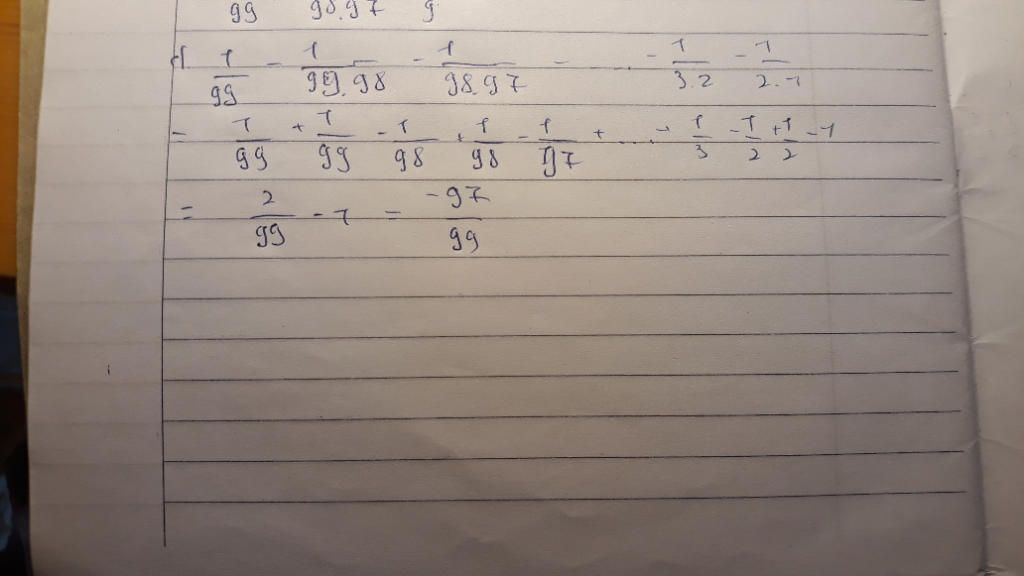 99 98.97 9
1/99 - 1/99.98 - 1/98.97 - .... - 1/3.2 - 1/2.1
= 1/99 + 1/99 - 1/98 + 1/98 - 1/97 + .... + 1/3 - 1/2 + 1/2 - 1
= 2/99 - 1 = -97/99